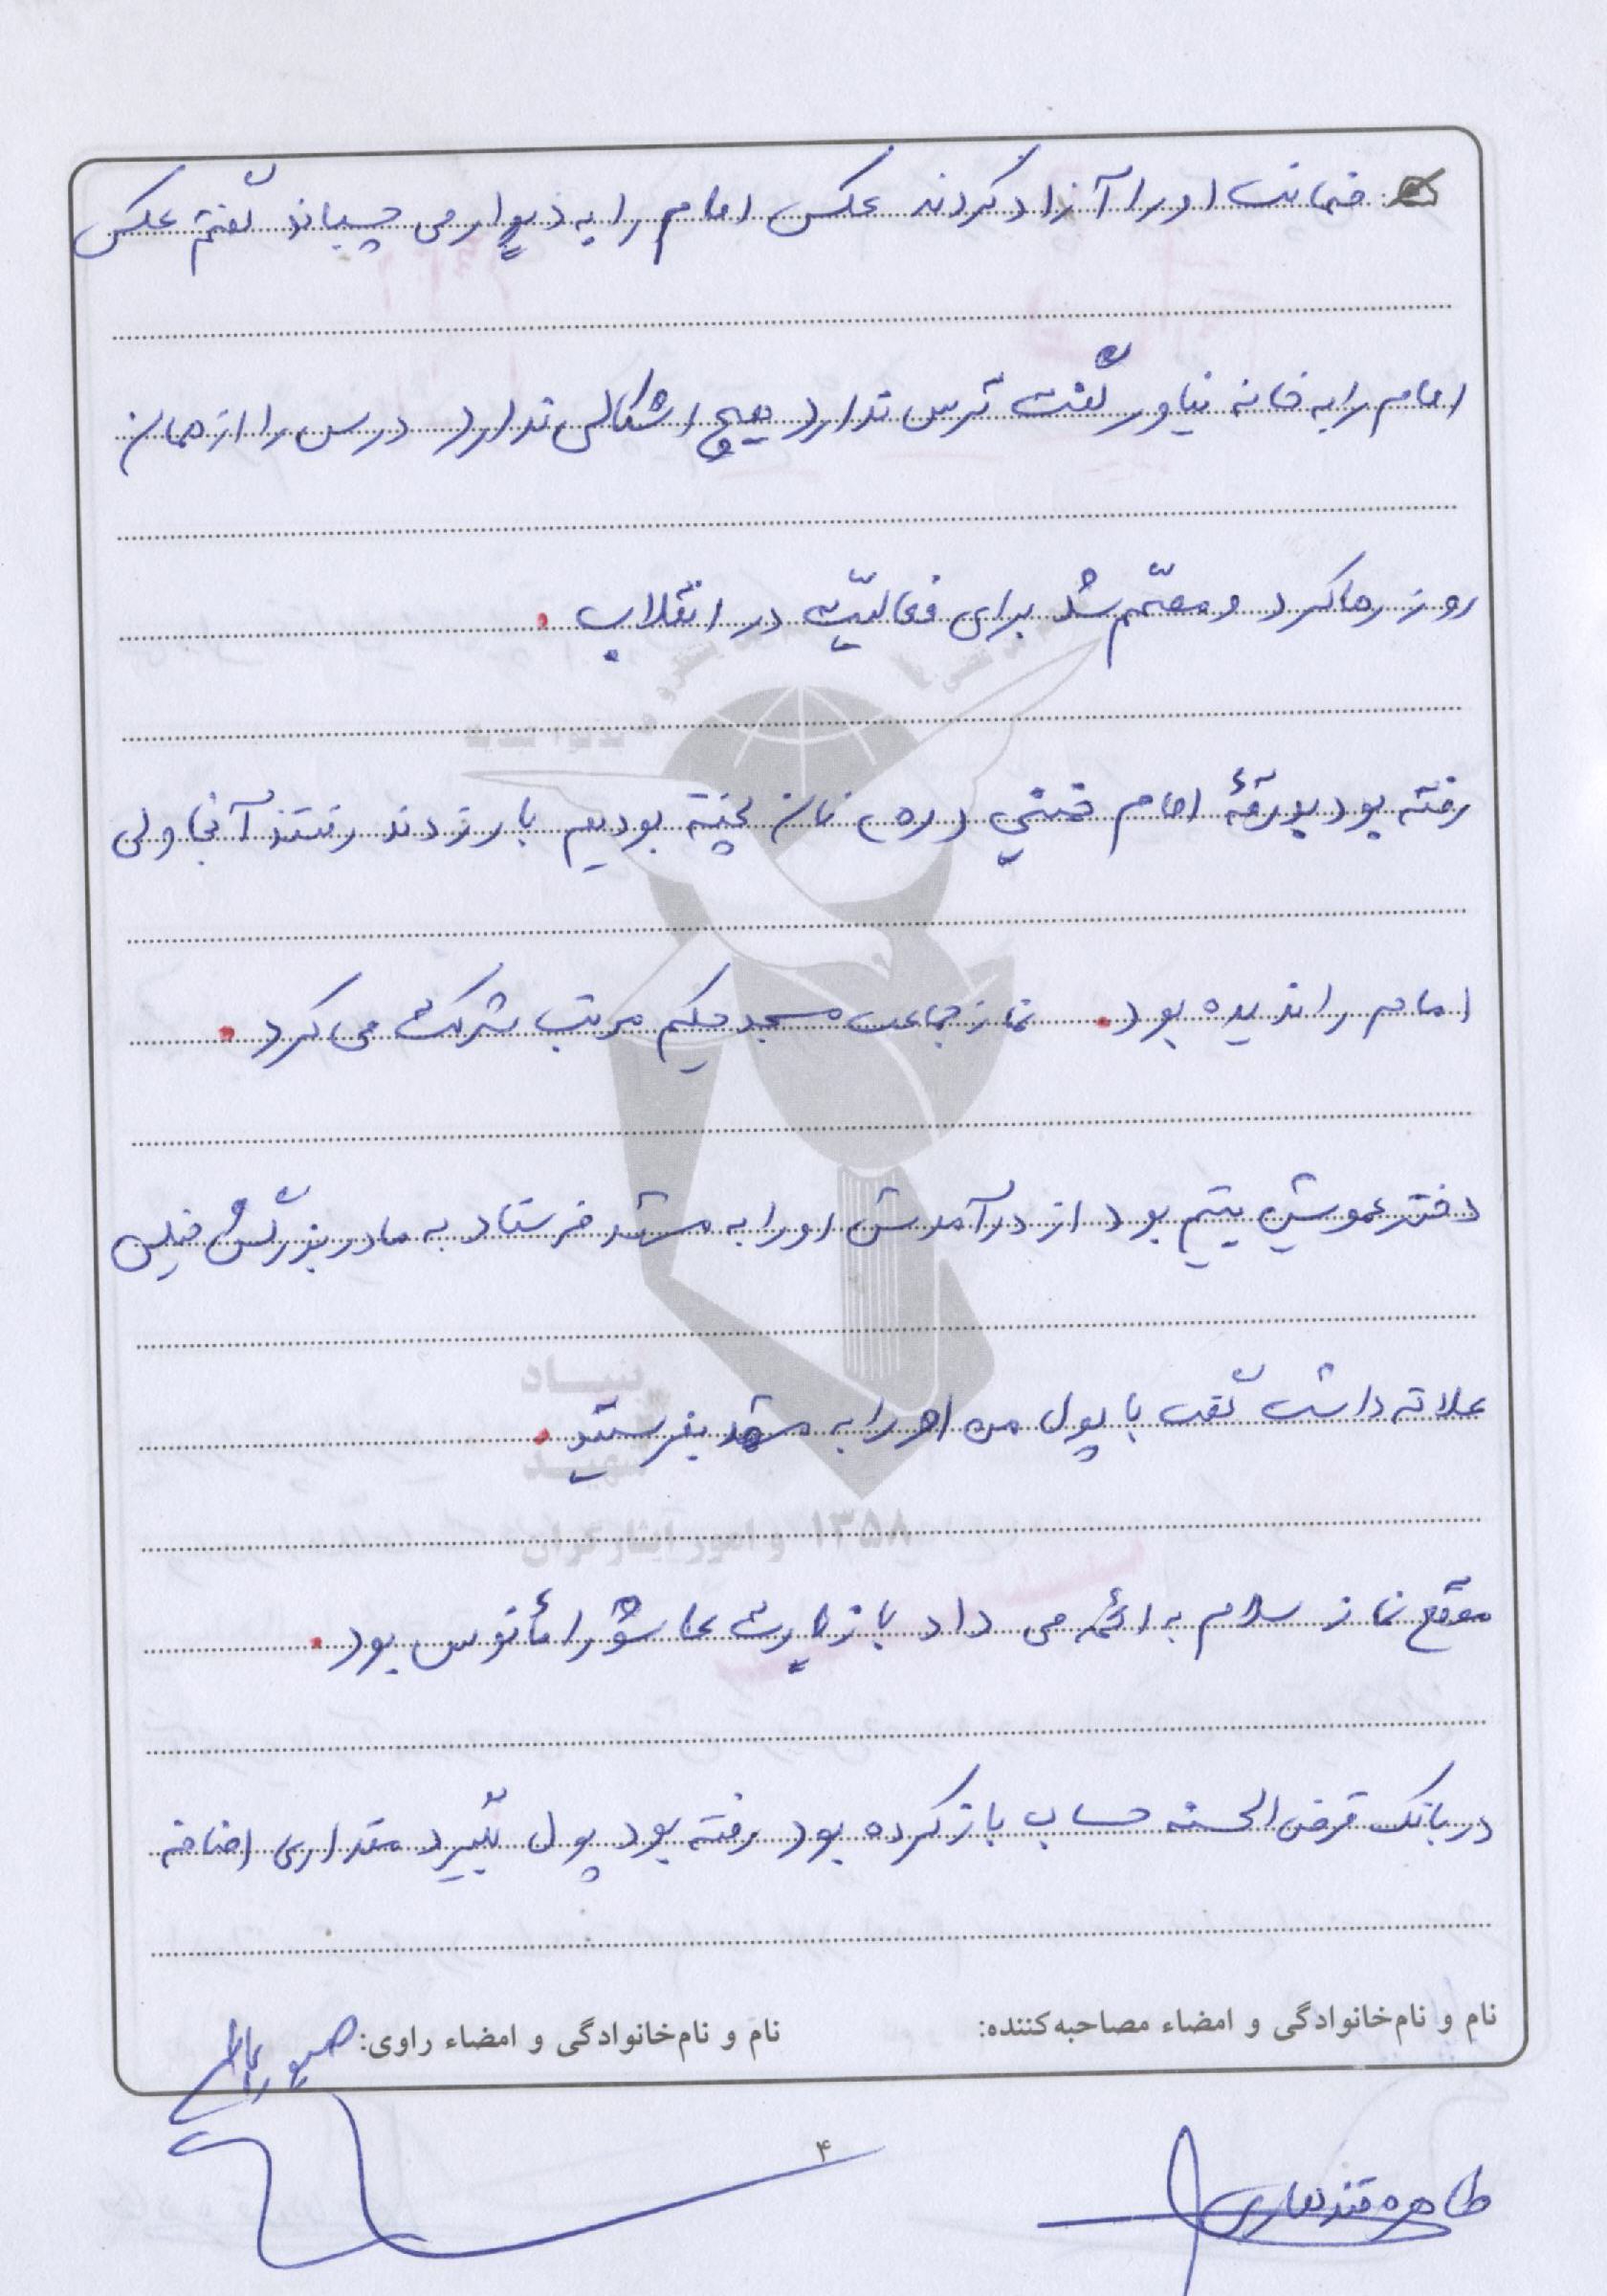 ضمانت او را آزاد کردند عکس امام را به دیوار می چسباند گفتم عکس
امام را به خانه نیاور گفت ترس ندارد هیچ اشکالی ندارد درس را از همان
روز رها کرد و مصمّم شد برای فعالیّت در انقلاب .
رفته بود بدرقۀ امام خمینی (ره) نان پخته بودیم بار زدند رفتند آنجا ولی
امام را ندیده بود . نماز جماعت مسجد حکیم مرتب شرکت می کرد .
دختر عمویش یتیم بود از درآمدش او را به مشهد فرستاد به مادربزرگش خیلی
علاقه داشت گفت با پول من او را به مشهد بفرستید .
موقع نماز سلام به ائمه می داد با زیارت عاشورا مأنوس بود .
در بانک قرض الحسنه حساب باز کرده بود رفته بود پول بگیرد مقداری اضافه
نام و نام‌خانوادگی و امضاء مصاحبه‌کننده: نام و نام‌خانوادگی و امضاء راوی:
طاهره قندهاری
۴
بنیاد
شهید
و امور ایثارگران ۱۳۵۸